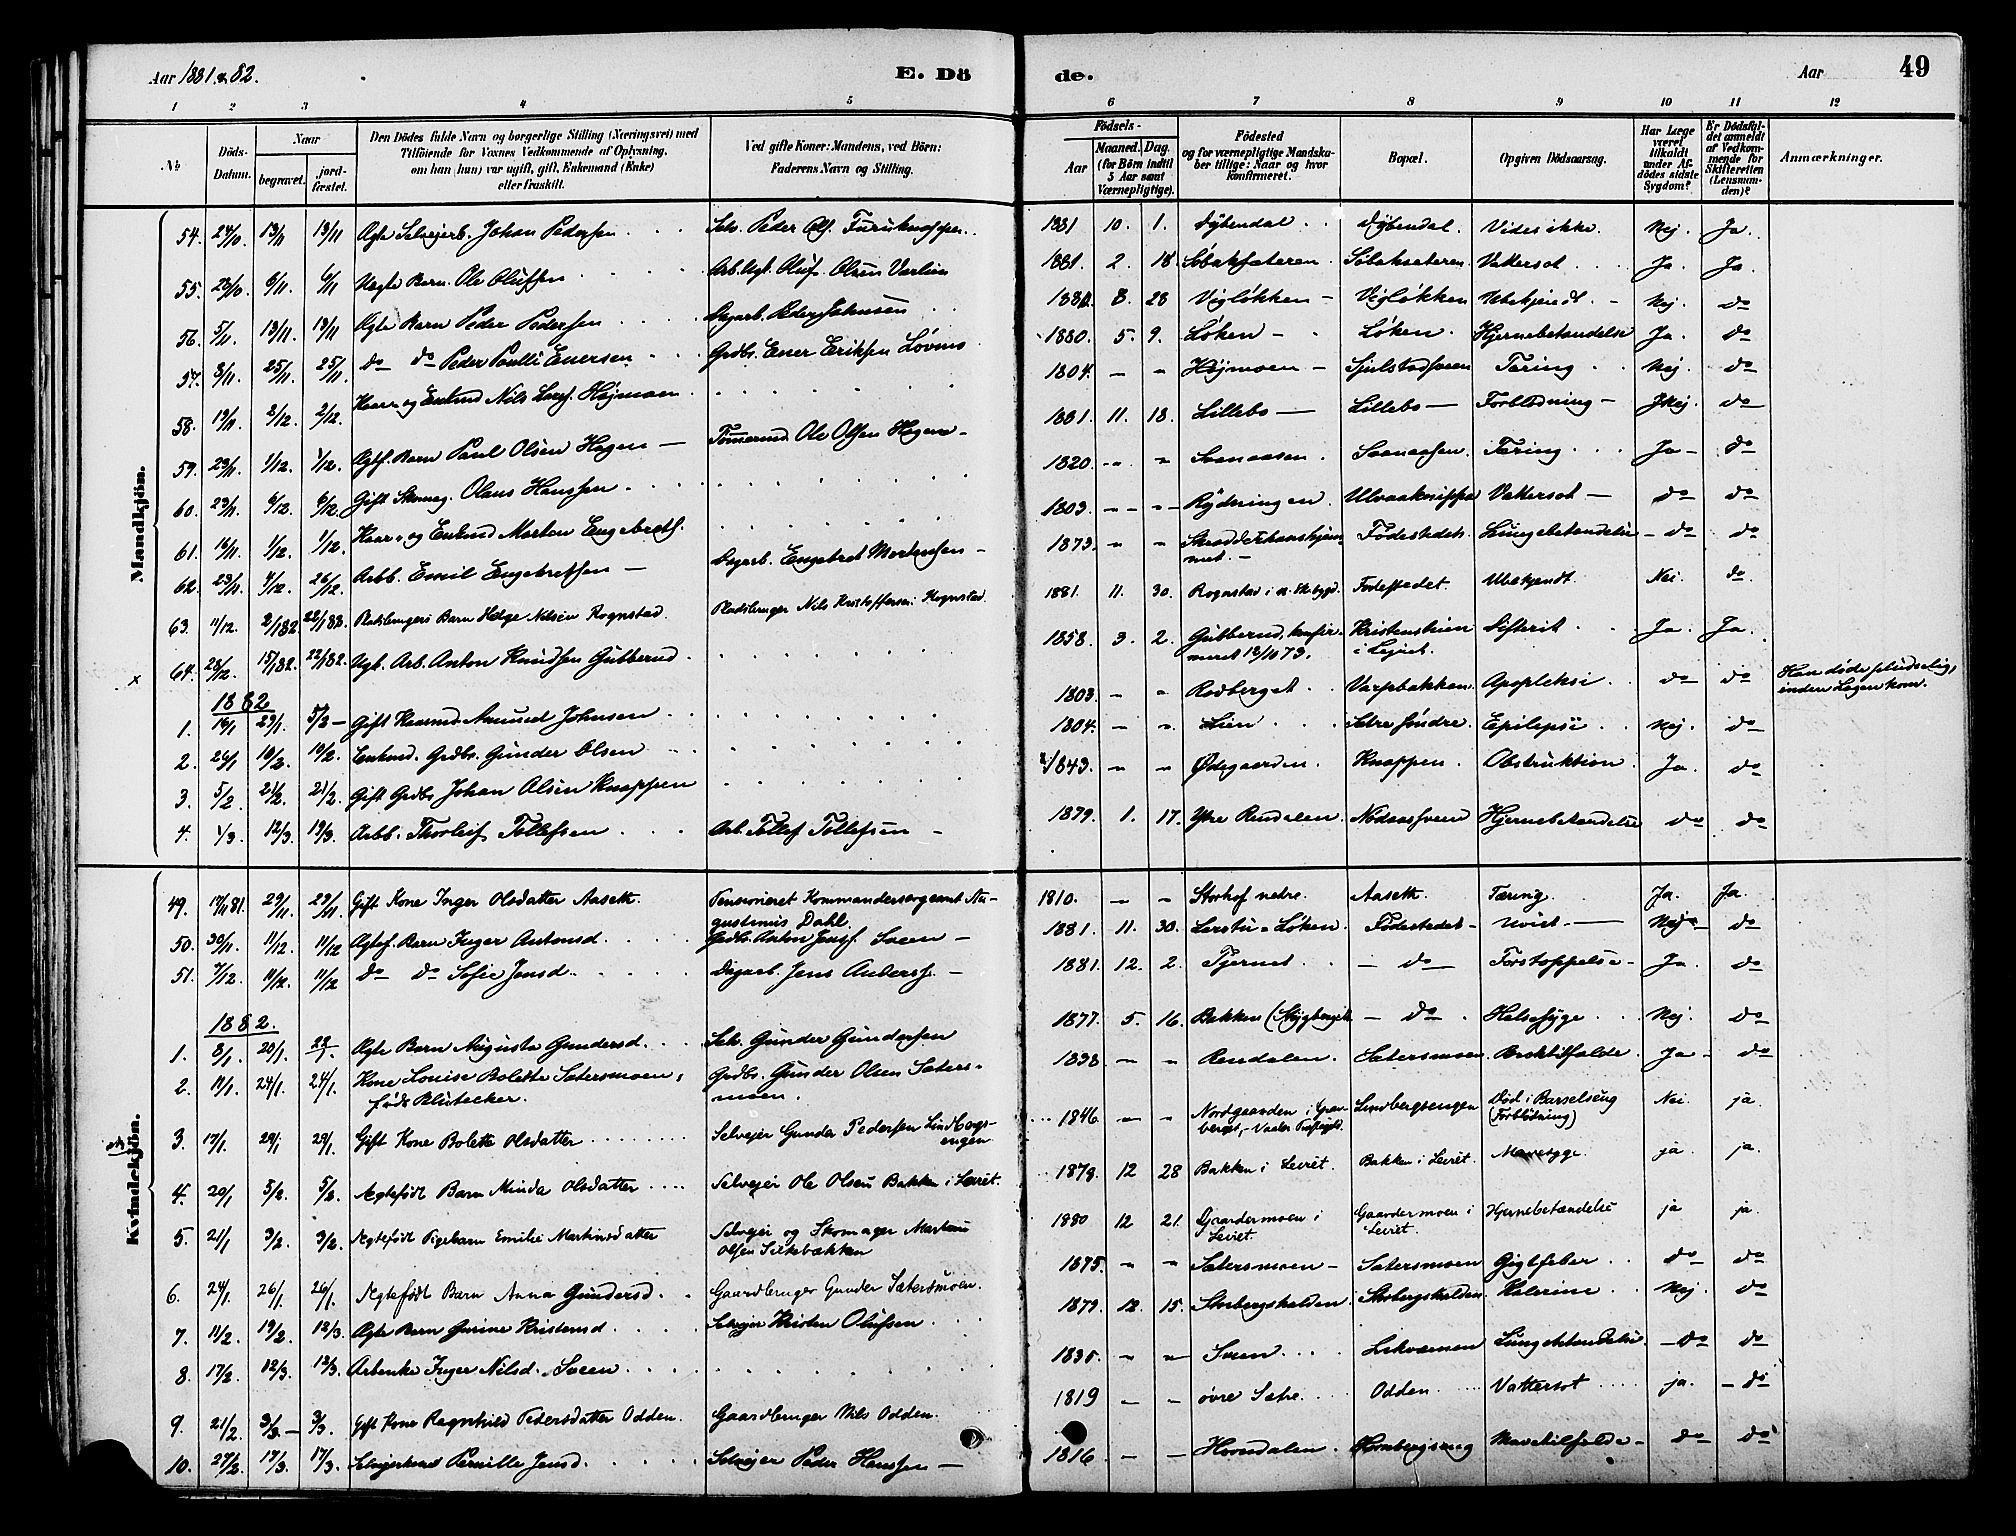 Aar 1881 & 82.
E. Dö
de.
Aar
49
1 2 3 4 5 6 7 8 9 10 11 12
No
Döds-Datum.
Naar
begravet.
jord-fæstet.
Den Dödes fulde Navn og borgerlige Stilling (Næringsvei) med
Tilföiende for Voxnes Vedkommende af Oplysning,
om han (hun) var ugift, gift, Enkemand (Enke)
eller fraskilt.
Ved gifte Koner: Mandens, ved Börn:
Faderens Navn og Stilling.
Födsels-
Aar
Maaned. Dag.
(for Börn indtil
5 Aar samt
Værnepligtige).
Födested
og for værnepligtige Mandska-
ber tillige: Naar og hvor
konfirmeret.
Bopæl.
Opgiven Dödsaarsag.
Har Læge
været
tilkaldt
under Af-
dödes sidste
Sygdom?
Er Dödsfal-
det anmeldt
af Vedkom-
mende for
Skifteretten
(Lensman-
den)?
Anmærkninger.
Mandkjön.
54. 24/10 13/11 13/11 Ægte Selvejerb. Johan Pedersen Selv. Peder Olf. Furuknappen 1881 10. 1. Dybendal Dybendal Vides ikke. Nej. Ja.
55. 6/11 6/11 Uægte Barn Ole Olufsen Oluf Olsen 1881. 2. 18. Søbaksæteren Søbaksæteren Vattersot Ja. Ja.
56. 5/11 13/11 13/11 Ægte Barn Peder Pedersen Dagarb. Peder Johnsen 8. 28 Vigløkken Vigløkken Ubekjendt Nej. do
57. 8/11 25/11 25/11 do do Peder Paulli Enersen Grdbr. Ener Eriksen 1880. 5. 9. Løken Løken Hjernebetændelse Ja. do
58. 19/11 2/12 2/12 Kaar- og Enkmd Nils Højmoen 1804. Højmoen Tæring Nej. do
59. 23/11 1/12 1/12 Ægtf. Barn Paul Olsen Hagen Ole Olsen Hagen 1881. 11. 18. Lillebo Lillebo Forblødning Nej. do
60. 23/11 6/12 6/12 Gift Olaus Hanssen 1820. Svenaasen Svenaasen Tæring Ja do
61. 16/11 1/12 1/12 Kaar- og Enkmd Morten Engebretsf. 1803. Rydningen Vattersot do do
62. 23/11 4/12 26/12 Arbb. Emil Engebretsen Dagarb. Engebret Mortensen 1873. Fødestedet Lungebetændelse do do
63. 11/12 2/1 82 22/1 82. Pladsbrugers Barn Helge Nilsen Rognstad Pladsbruger Nils Kristoffersen Rognstad 1881. 11. 30. Rognstad Fødestedet. Ubekjendt Nei. do
64. 28/12 15/1 82. 22/1 82. Ugt. Arb. Anton Knudsen Gubberud 1858. 3. 2. Gubberud, konfirmeret 12/10 73. Kristenstuen i Difterit Ja. Ja.
1882
1. 16/1 29/1. 5/2 Gift Kaarmd. Amund Johnsen 1803. Rødberget Varpbakken Apopleksi do do Han døde pludselig,
inden Lægen kom.
2. 26/1 19/2. 19/2. Enkmd. Grdbr. Gunder Olsen 1804. Lien Sætre søndre Epilepsi Nej. do
3. 5/2 21/2. 21/2. Gift Grdbr Johan Olsen Knappen 1843. Ødegaarden Knappen Obstruktion. Ja. do
4. 1/3. 12/3 19/3. Arbb. Thorleif Tollefsen Arb. Tollef Tollefsen 1879. 1. 17. Ytre Rendalen Nodaasveen Hjernebetændelse do do
Kvindekjön.
49. 17/11 81. 29/11. 29/11. Gift Kone Inger Olsdatter Aaseth. Pensioneret Kommandersergeant Au-
gustinius Dahl. 1810. Storhof nedre. Aaseth. Tæring. Ja. Ja.
50. 30/11. 11/12. 11/12 Ægtef. Barn Inger Antonsd. Grdbr. Anton Sveen 1881. 11. 30. Løken Fødestedet Uvist Nej do
51. 7/12. 11/12. 11/12 do do Sofie Jensd. Dagarb. Jens Andersf. 1881. 12. 2. Tjernet do Forstoppelse Ja. do
1882.
1. 8/1. 20/1. 22/1. Ægte Barn Augusta Gundersd. Selv. Gunder Gundersen 1877. 5. 16. Bakken do Halssyge Nej. do
2. 11/1. 24/1. 24/1. Kone Louise Bolette Sætersmoen,
født Klütecker. Grdbr. Gunder Olsen Sæters-
moen. 1838 Rendalen. Sætersmoen Brsktilfælde Ja do
3. 17/1. 29/1 29/1. Gift Kone Bolette Olsdatter Selvejer Gunder Pedersen Lindbergs-
engen 1846. Nordgaarden i Grav-
berget, Vaaler Lindbergsengen Død i Barselseng
(Forblødning) Nei ja
4. 20/1 5/2. 5/2. Ægtefødt Barn Minda Olsdatter Selvejer Ole Olsen Bakken i Leiret. 1878 12 28 Bakken i Leiret. Bakken i Leiret. Mavesyge. ja ja.
5. 21/1 3/2. 3/2. Ægtefødt Pigebarn Emilie Martinsdatter Selvejer og Skomager Martin
Olsen Silkebækken 1880 12 21. Gaardermoen i
Leiret Gaardermoen i
Leiret. Hjernebetændelse ja ja.
6. 24/1. 26/1. 26/1. Ægtefødt Barn Anna Gundersd. Gaardbruger Gunder Sætersmoen. 1875. Sætersmoen Sætersmoen Gigtfeber do do
7. 11/2. 19/2. 12/3. Ægte Barn Gurine Kristensd Selvejer Kristen Olufsen 1879. 12. 15. Storbergshalden Storbergshalden Kolerine Nej do
8. 17/2 12/3. 12/3. Arbenke Inger Nilsd. Sveen 1835. Sveen Lungebetændelse do do
9. 21/2. 3/3 3/3. Gift Kone Ragnhild Pedersdatter Odden. Gaardbruger Nils Odden. 1819 øvre Sætre Odden Vattersot ja. do
10. 27/2. 17/3. 17/3. Pernille Jensd. Selvejer Peder Hanssen 1816 Hovdalen. Mavetilfælde do do